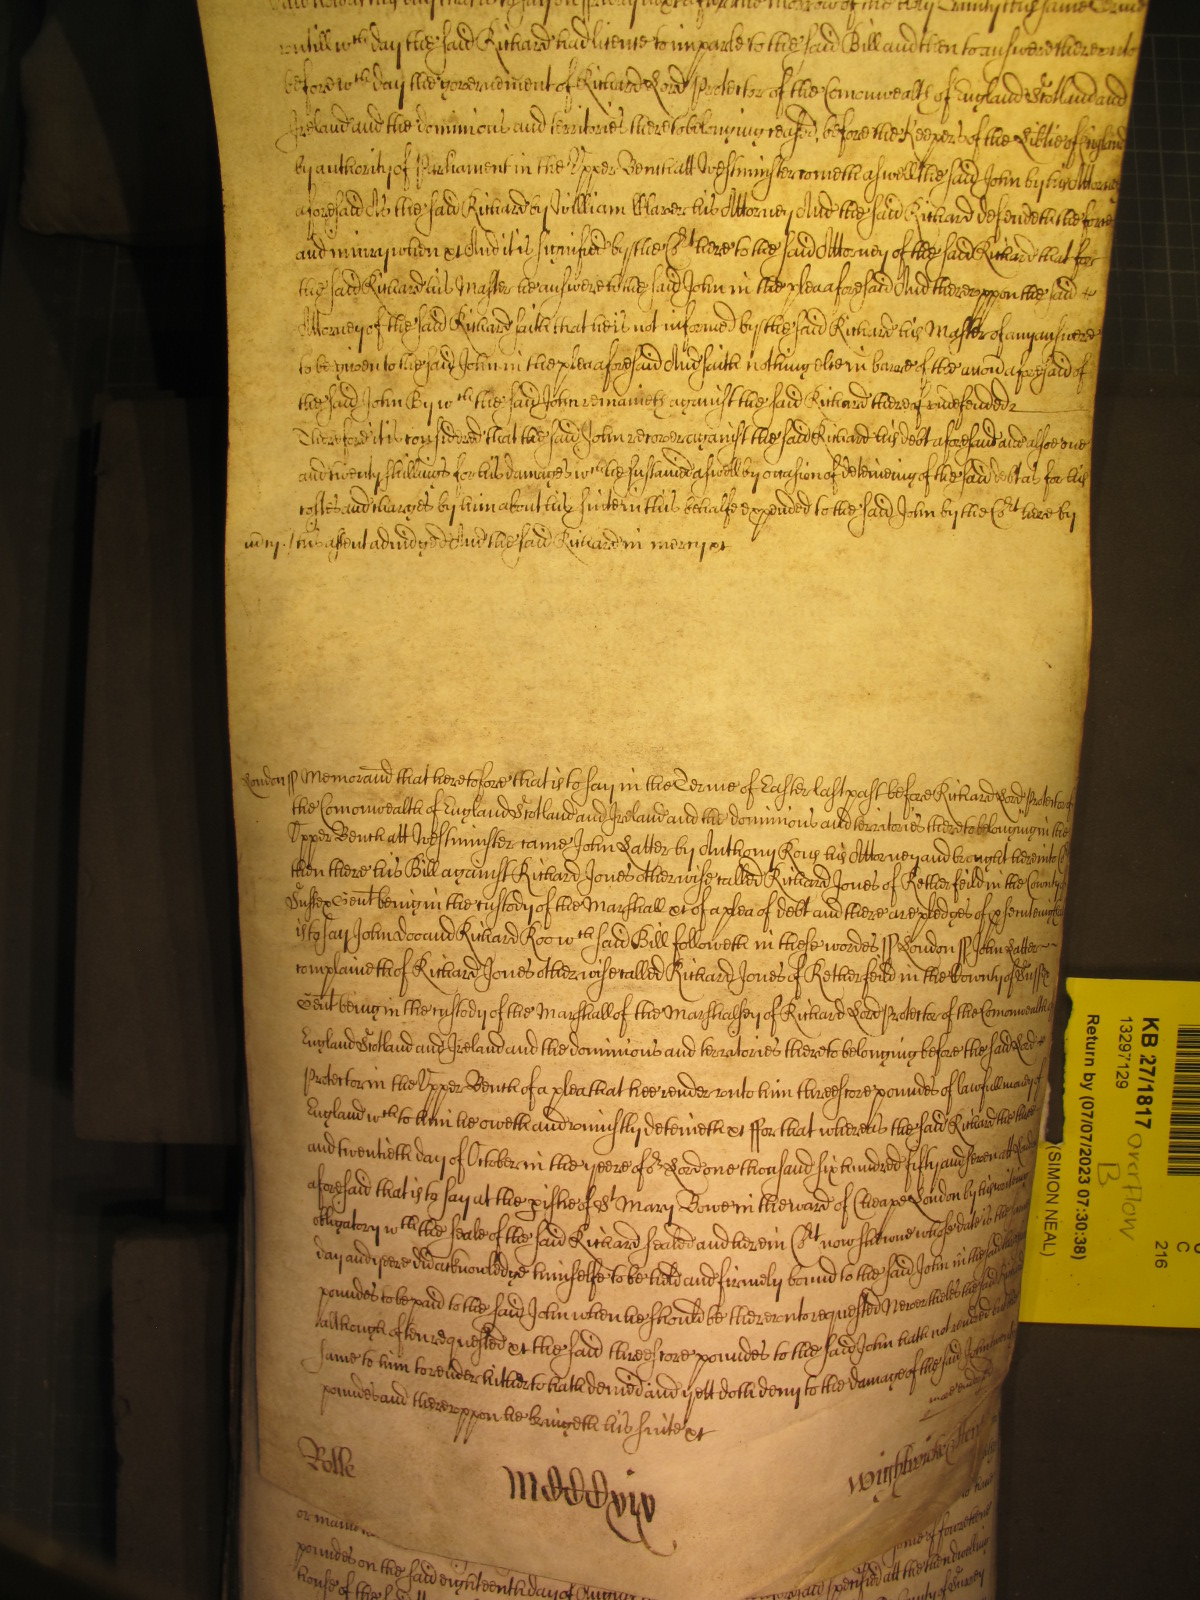 untill wch day the said Richard had licence to imparle to the said Bill and then to answere thereunto
before wch day the governement of Richard Lord Protector of the Comonwealth of England Scotland and
Ireland and the dominions and territories thereto belonging ceased, before the Keepers of the Libtie of England
by authority of Parliament in the Upper Bench att Westminster cometh aswell the said John by his Attorney
aforesaid As the said Richard by William his Attorney And the said Richard defendeth the force
and iniury when &c And it is signified by the Crt here to the said Attorney of the said Richard that for
the said Richard his Master he answere to the said John in the plea aforesaid And thereuppon the said
Attorney of the said Richard saith that he is not informed by the said Richard his Master of any answere
to be given to the said John in the plea aforesaid And saith nothing else in barre of the accon aforesaid of
the said John By wch the said John remaineth against the said Richard thereof undefended
Therefore it is considered that the said John recover against the said Richard his debt aforesaid and alsoe one
and twenty shillings for his damages wch he sustained aswell by occasion of deteineing of the said debt as for his
costes and charges by him about his suite in this behalfe expended to the said John by the Crt here by
his assent adiudged And the said Richard in mercy &c
London ss Memorand that heretofore that is to say in the Terme of Easter last past before Richard Lord Protector of
the Comonwealth of England Scotland and Ireland and the dominions and territories thereto belonging in the
Upper Bench att Westminster came John Latter by Anthony Rous his Attorney and brought here into
then there his Bill against Richard Jones otherwise called Richard Jones of Retherfeild in the County of
Sussex Gent being in the custody of the Marshall &c of a plea of debt and there are pledges of
is to say John Doo and Richard Roo wch said Bill followeth in these wordes ss London ss John Latter
complaineth of Richard Jones otherwise called Richard Jones of Retherfeild in the County of Sussex
Gent being in the custody of the Marshall of the Marshalsey of Richard Lord Protector of the Comonwealth of
England Scotland and Ireland and the dominions and territories thereto belonging before the said Lord
Protector in the Upper Bench of a plea that hee render unto him threescore poundes of lawfull money of
England wch to him he oweth and uniustly deteineth &c ffor that whereas the said Richard the three
and twentieth day of October in the yeere of or Lord one thousand six hundred fifty and seven att London
aforesaid that is to say at the pishe of St Mary Bowe in the ward of Cheape London by his writing
obligatory wth the seale of the said Richard sealed and here in Crt now shewne whose date is the same
day and yeere did acknowledge himselfe to be held and firmely bound to the said John in the said
poundes to be paid to the said John when he should be thereunto requested Neverthelesse the said Richard
although often requested &c the said threescore poundes to the said John hath not rendred but the
same to him to render hitherto hath denied and yett doth deny to the damage of the said John
poundes and thereuppon he bringeth his suite &c
Rolle
poundes on the said eighteenth day of
house of the
KB 27/1817
13297129
overflow
B
Return by (07/07/2023 07:30:38)
(SIMON NEAL)
216
C